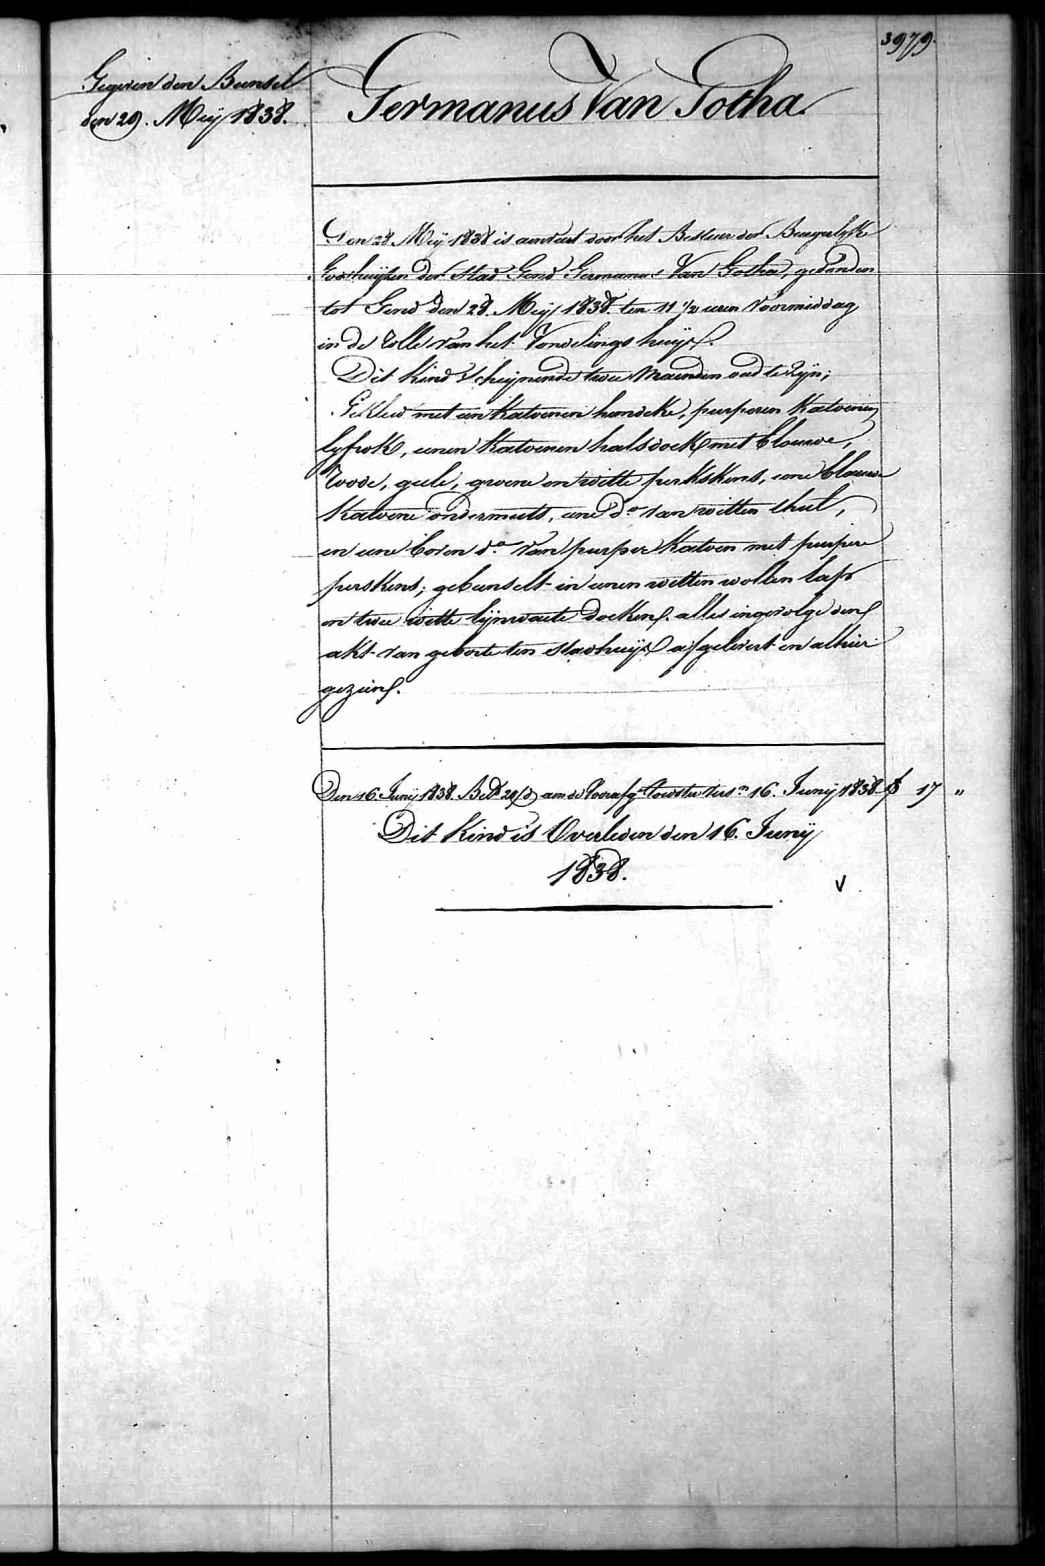 3979.
Gegeven den Bunsel
den 29. Meÿ 1838.
Germanus Van Gotha
Den 28. Meÿ 1838 is aenveert door het Bestuer der Burgerlyke
Godshuijzen der Stad Gend Germanus Van Gotha, gevonden
tot Gend den 28. Meÿ 1838. ten 11 1/2 uren Voormiddag
in de Rolle van het Vondelings huÿs.
Dit kind schijnende twee Maenden oud te zijn;
Gekleed met een katoenen hemdeke, purperen Katoenen
lyfrok, eenen katoenen halsdoek met blauwe,
Roode, geele, groene en witte perkskens, eene blauwe
katoene ondermuts, eene do van witten thul,
en eene boven do van purper katoen met purpere
perskens; gebunselt in eenen witten wollen lap
en twee witte lijnwaete doeken. alles ingevolge den
akt van geboorte ten stadhuijs afgelevert en alhier
gezien.
Den 16. Junÿ 1838. aen de 16. Junÿ 1838 17 "
Dit Kind is Overleden den 16. Junÿ
1838.